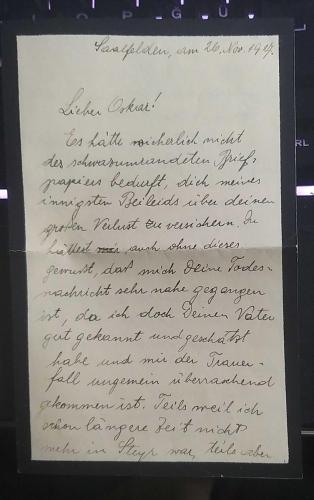 Saalfelden, am 26. Nov. 19
Lieber Oskar!
Es hätte sicherlich nicht
des schwarzumrandeten Brief-
papiers bedurft, dich meines
innigsten Beileids über deinen
großen Verlust zu versichern. Du
hättest auch ohne dieses
gewusst, daß mich Deine Todes-
nachricht sehr nahe gegangen
ist, da ich doch Deinen Vater
gut gekannt und geschätzt
habe und mir der Trauer-
fall ungemein überraschend
gekommen ist. Teils weil ich
schon längere Zeit nicht
mehr in Steyr war, teils aber